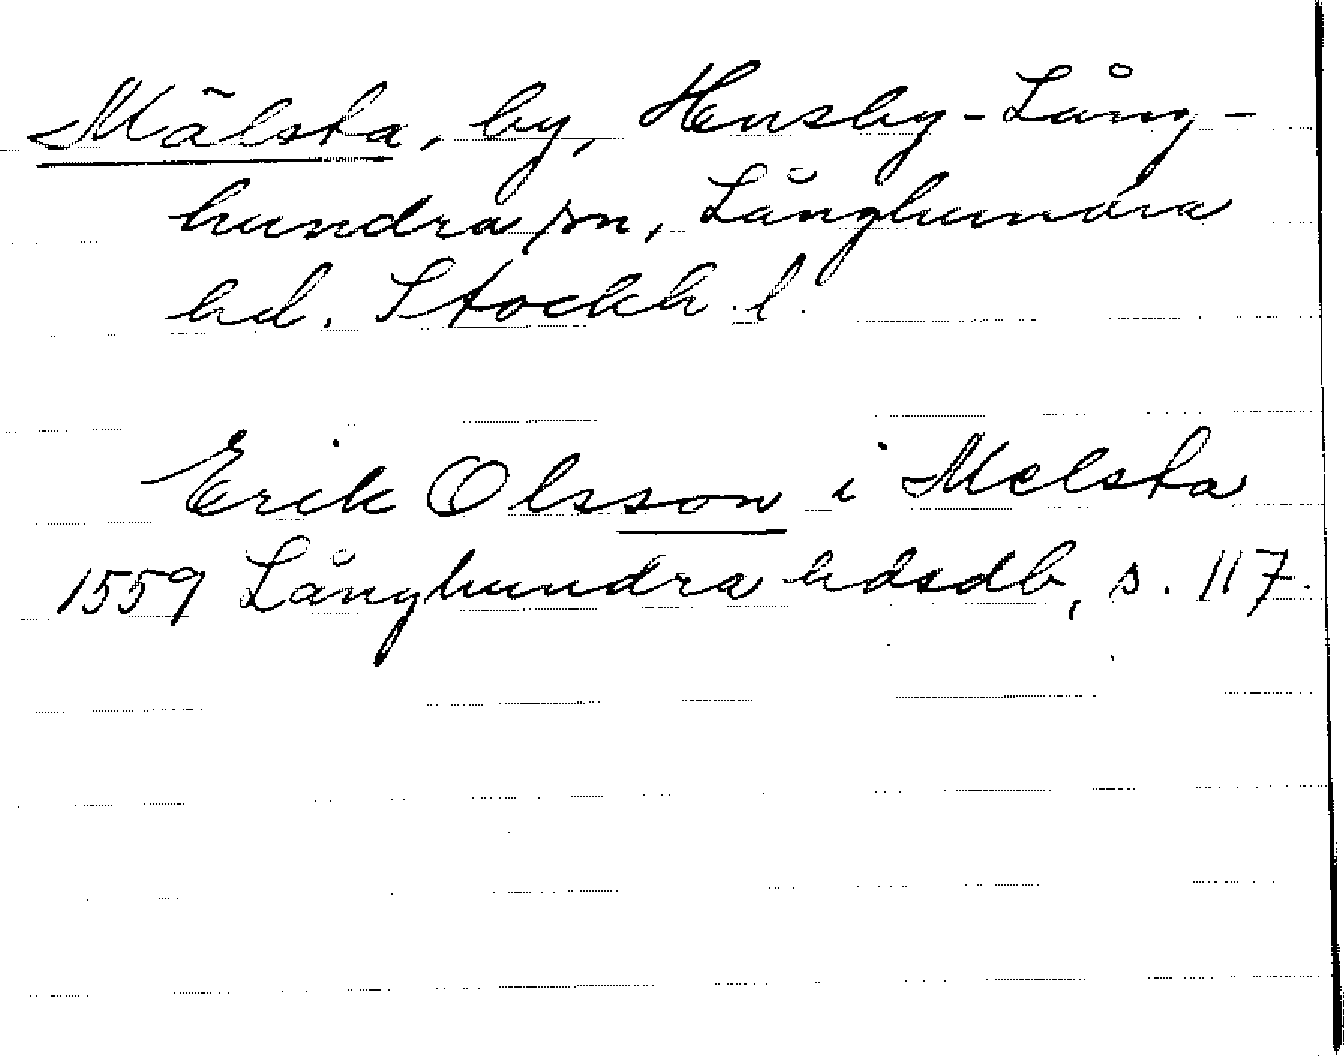 Mälsta, by, Husby-Lång-
hundra sn, Långhundra
hd. Stockh. l.
Erik Olsson i Melsta
1559 Långhundra hdsdb, s. 117.